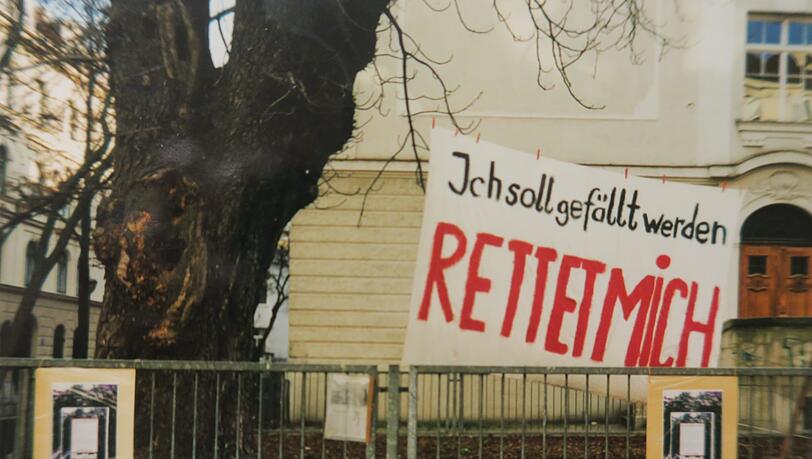 Jch soll gefällt werden
RETTET MiCH